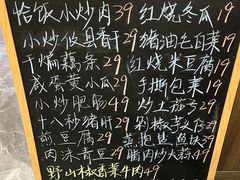 恰饭小炒肉39 红烧冬瓜19
小炒攸县香干29 猪油包菜19
干煸藕条29 红烧米豆腐29
咸蛋黄小瓜29 手撕包菜19
小炒肥肠49 炒土茄子29
十八秒猪肝29 剁椒芋头仔29
煎豆腐29
肉沫青豆29 腊肉炒大蒜49
野山椒香菜牛肉49